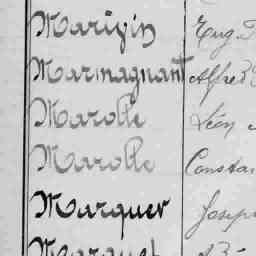 Marivin Eug
Marmagnant Alfred
Marolle Léon
Marolle Constan
Marquer Joseph
Marquet